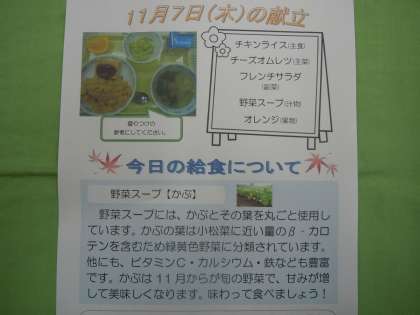 11月7日(木)の献立
チキンライス(主食)
チーズオムレツ(主菜)
フレンチサラダ
(副菜)
野菜スープ(汁物)
オレンジ(果物)
盛りつけの
参考にしてください。
今日の給食について
野菜スープ【かぶ】
野菜スープには、かぶとその葉を丸ごと使用
しています。かぶの葉は小松菜に近い量のβ‐カロ
テンを含むため緑黄色野菜に分類されています。
他にも、ビタミンC・カルシウム・鉄なども豊富
です。かぶは11月からが旬の野菜で、甘みが増
して美味しくなります。味わって食べましょう!